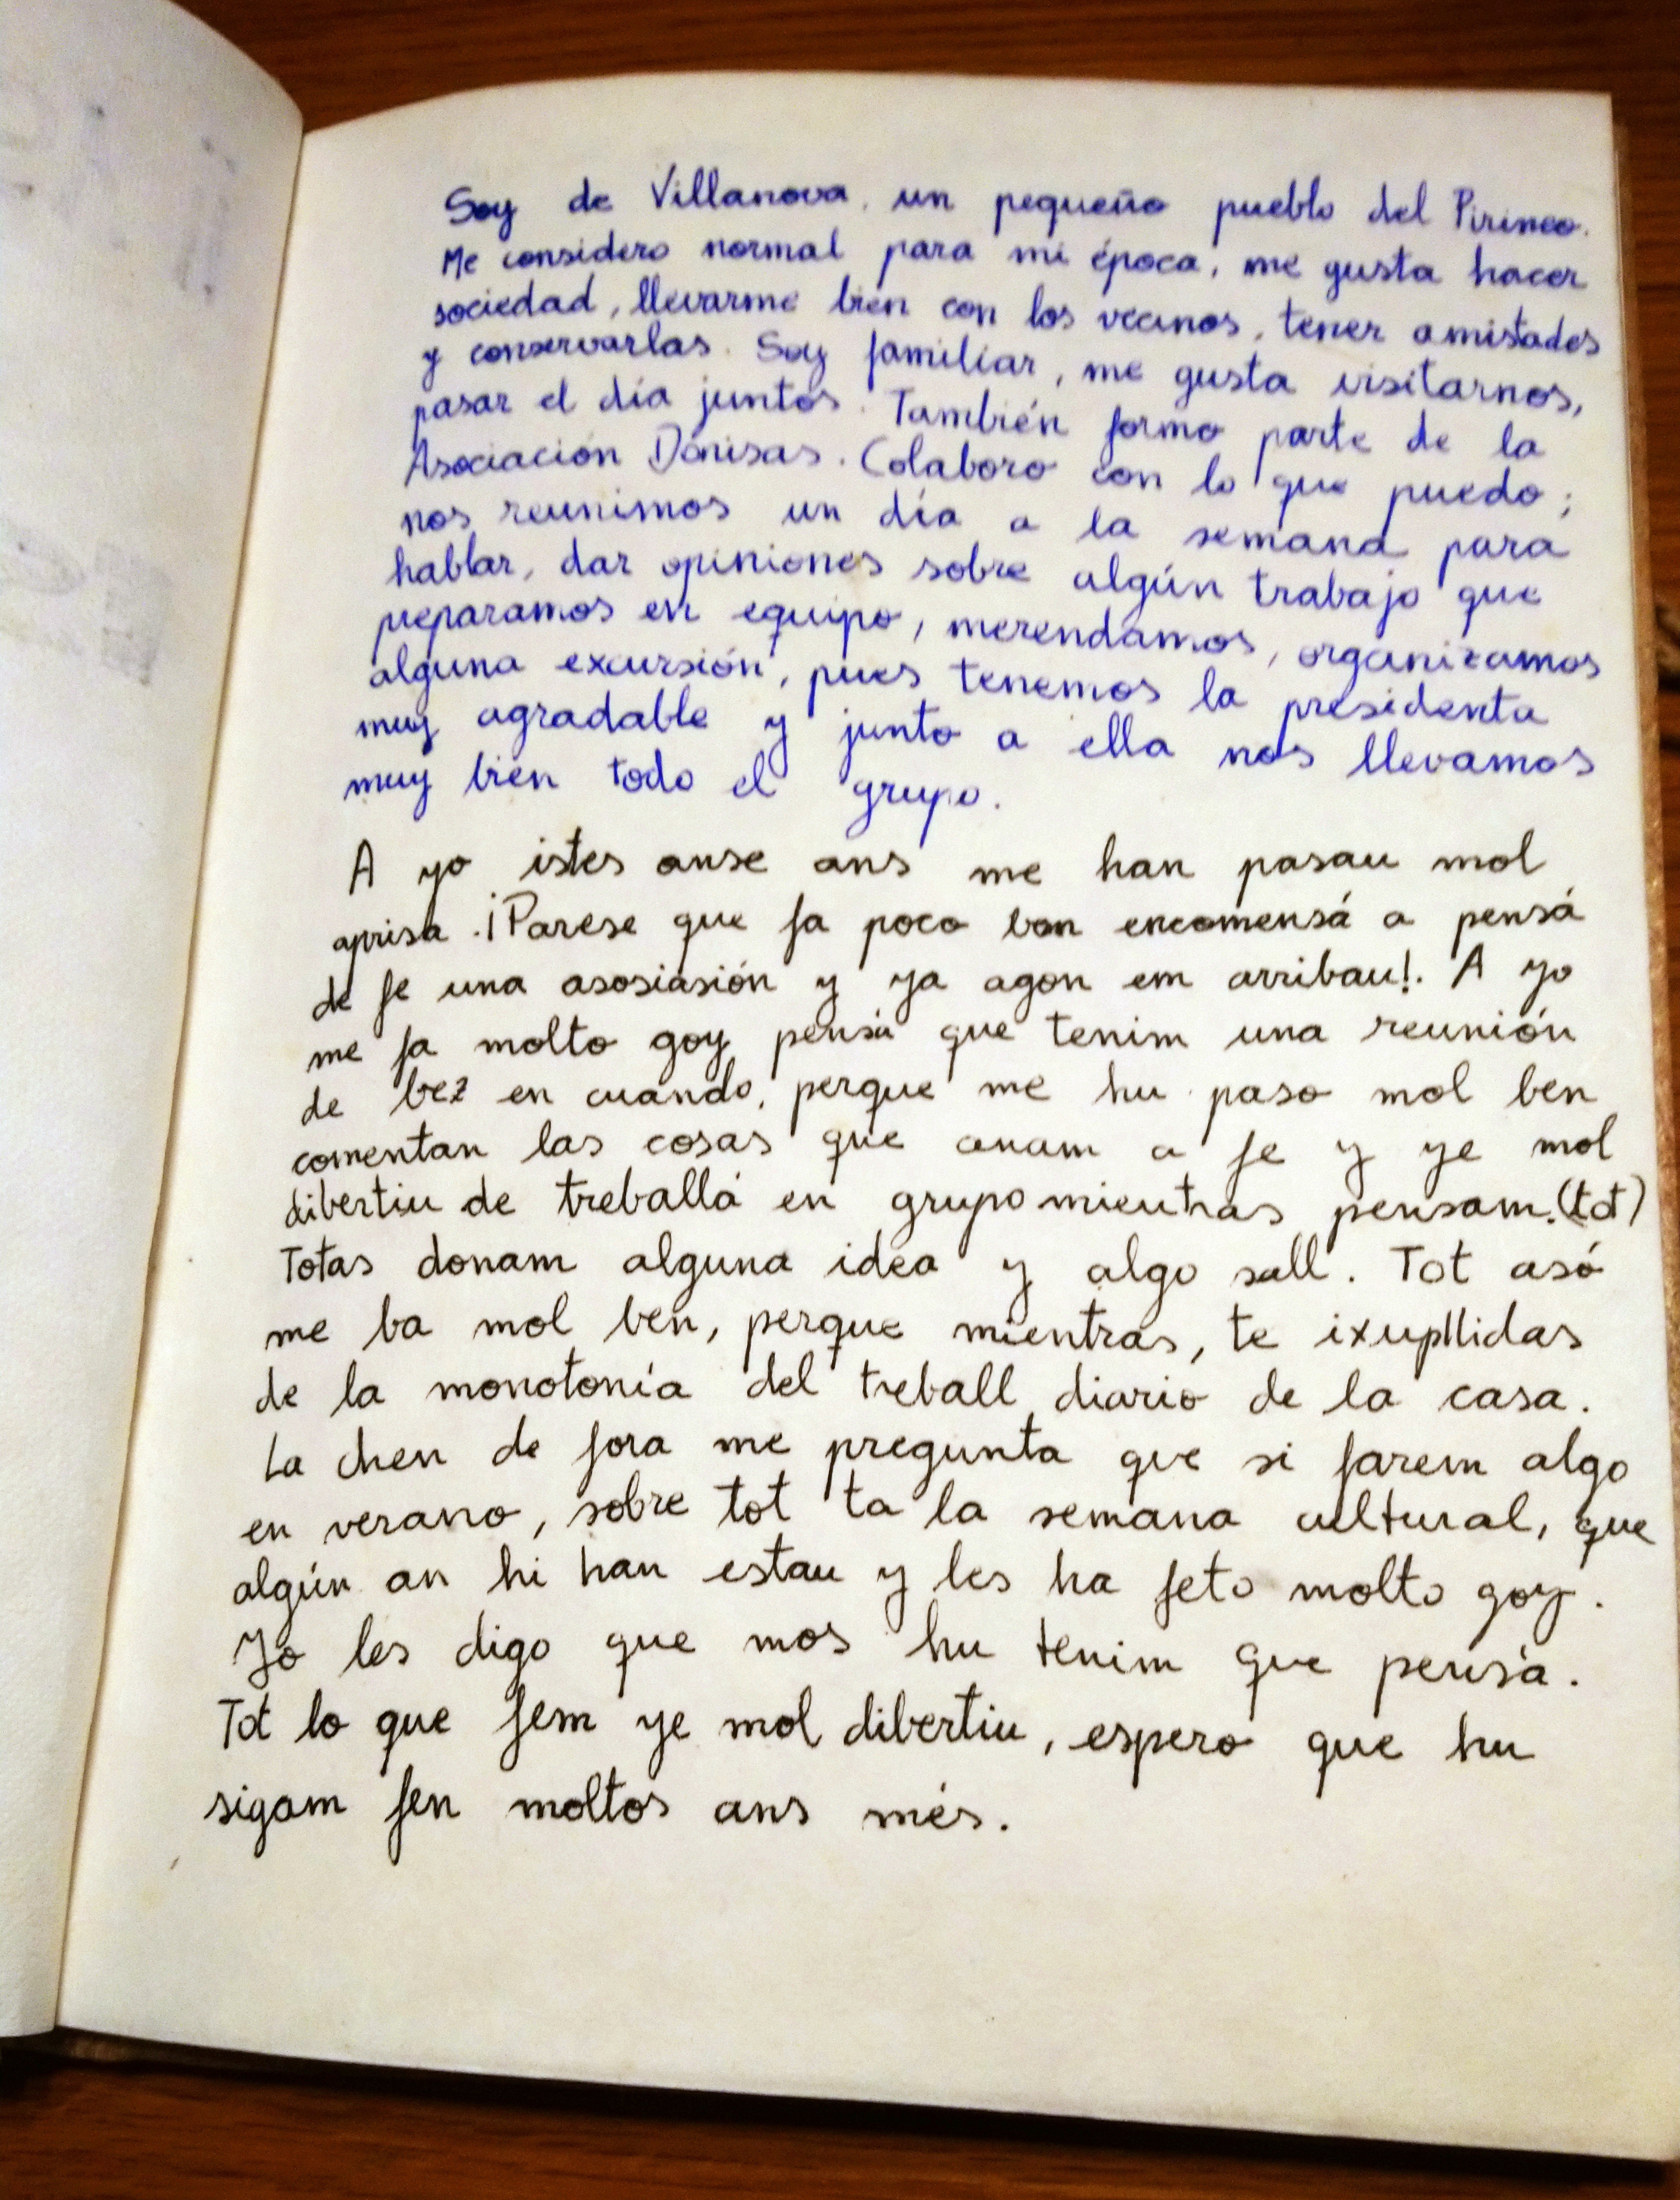 Soy de Villanova, un pequeño pueblo del Pirineo.
Me considero normal para mi época, me gusta hacer
sociedad, llevarme bien con los vecinos, tener amistades
y conservarlas. Soy familiar, me gusta visitarnos,
pasar el día juntos. También formo parte de la
Asociación Dónisas. Colaboro con lo que puedo;
nos reunimos un día a la semana para
hablar, dar opiniones sobre algún trabajo que
preparamos en equipo, merendamos, organizamos
alguna excursión, pues tenemos la presidenta
muy agradable y junto a ella nos llevamos
muy bien todo el grupo.
A yo istes onse ans me han pasau mol
aprisa. ¡Parese que fa poco bon encomensá a pensá
de fe una asosiasión y ya agon em arribau!. A yo
me fa molto goy pensá que tenim una reunión
de bez en cuando, perque me hu paso mol ben
comentan las cosas que anam a fe y ye mol
dibertiu de treballá en grupo mientras pensam.(tot)
Totas donam alguna idea y algo sall. Tot asó
me ba mol ben, perque mientras, te ixupllidas
de la monotonía del treball diario de la casa.
La chen de fora me pregunta que si farem algo
en verano, sobre tot ta la semana cultural, que
algún an hi han estau y les ha feto molto goy.
Yo les digo que mos hu tenim que pensá.
Tot lo que fem ye mol dibertiu, espero que hu
sigam fen moltos ans més.